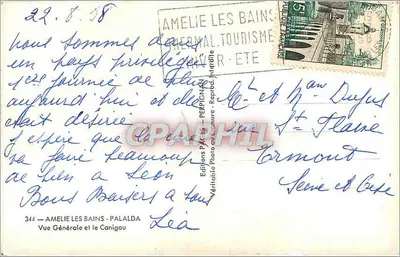 22.8.58
Nous sommes dans
un pays privilégié
1ère journée de pluie
aujourd'hui et elle
était désirée.
J'espère que la cure
va faire beaucoup
de bien à Léon
Bons Baisers à tous
Léa
344 — AMELIE LES BAINS - PALALDA
Vue Générale et le Canigou
Editions PALAU - PERPIGNAN
Véritable Photo au Bromure - Reprod. Interdite
AMELIE LES BAINS
THERMAL TOURISME
HIVER-ETE
15F
Mr et Mme Dufus
rue St Flaive
Ermont
Seine et Oise
CPARAMA